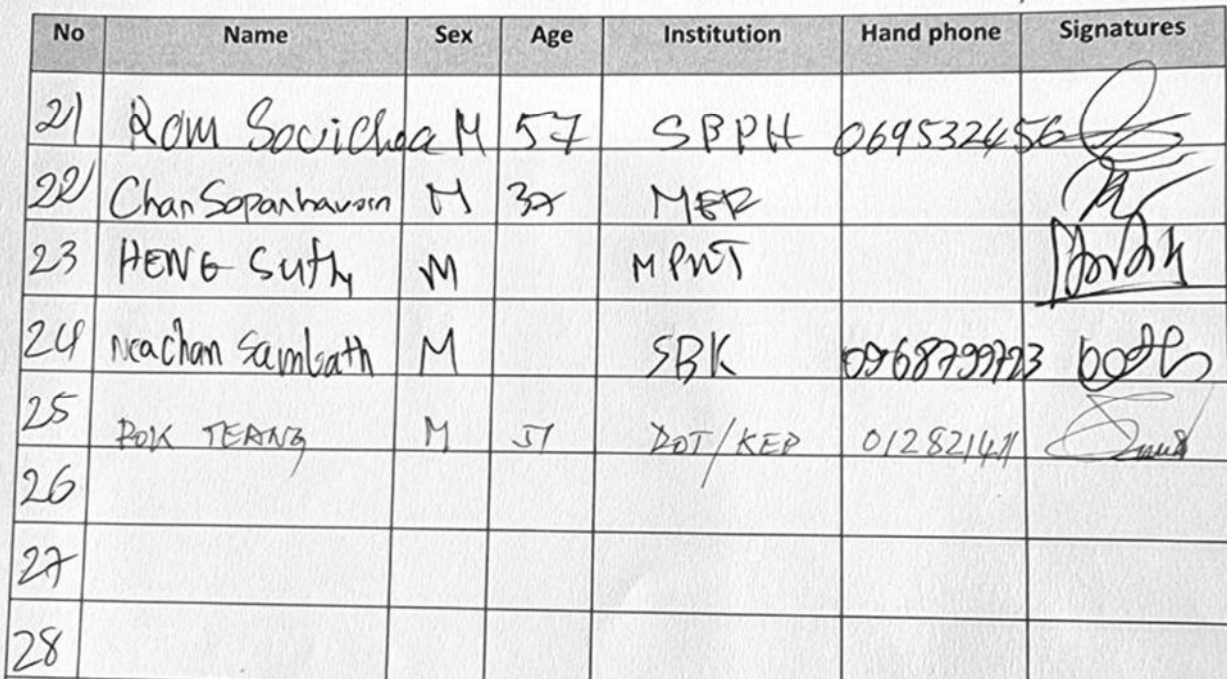 No Name Sex Age Institution Hand phone Signatures
21 Rom Sovichea M 57 SBPH 069532456
22 Chan Sopanhavorn M 37 MEF
23 HENG Suthy M MPWT
24 Neachan Sambath M SBK
25 POK TEANG M 57 DOT/KEP
26
27
28